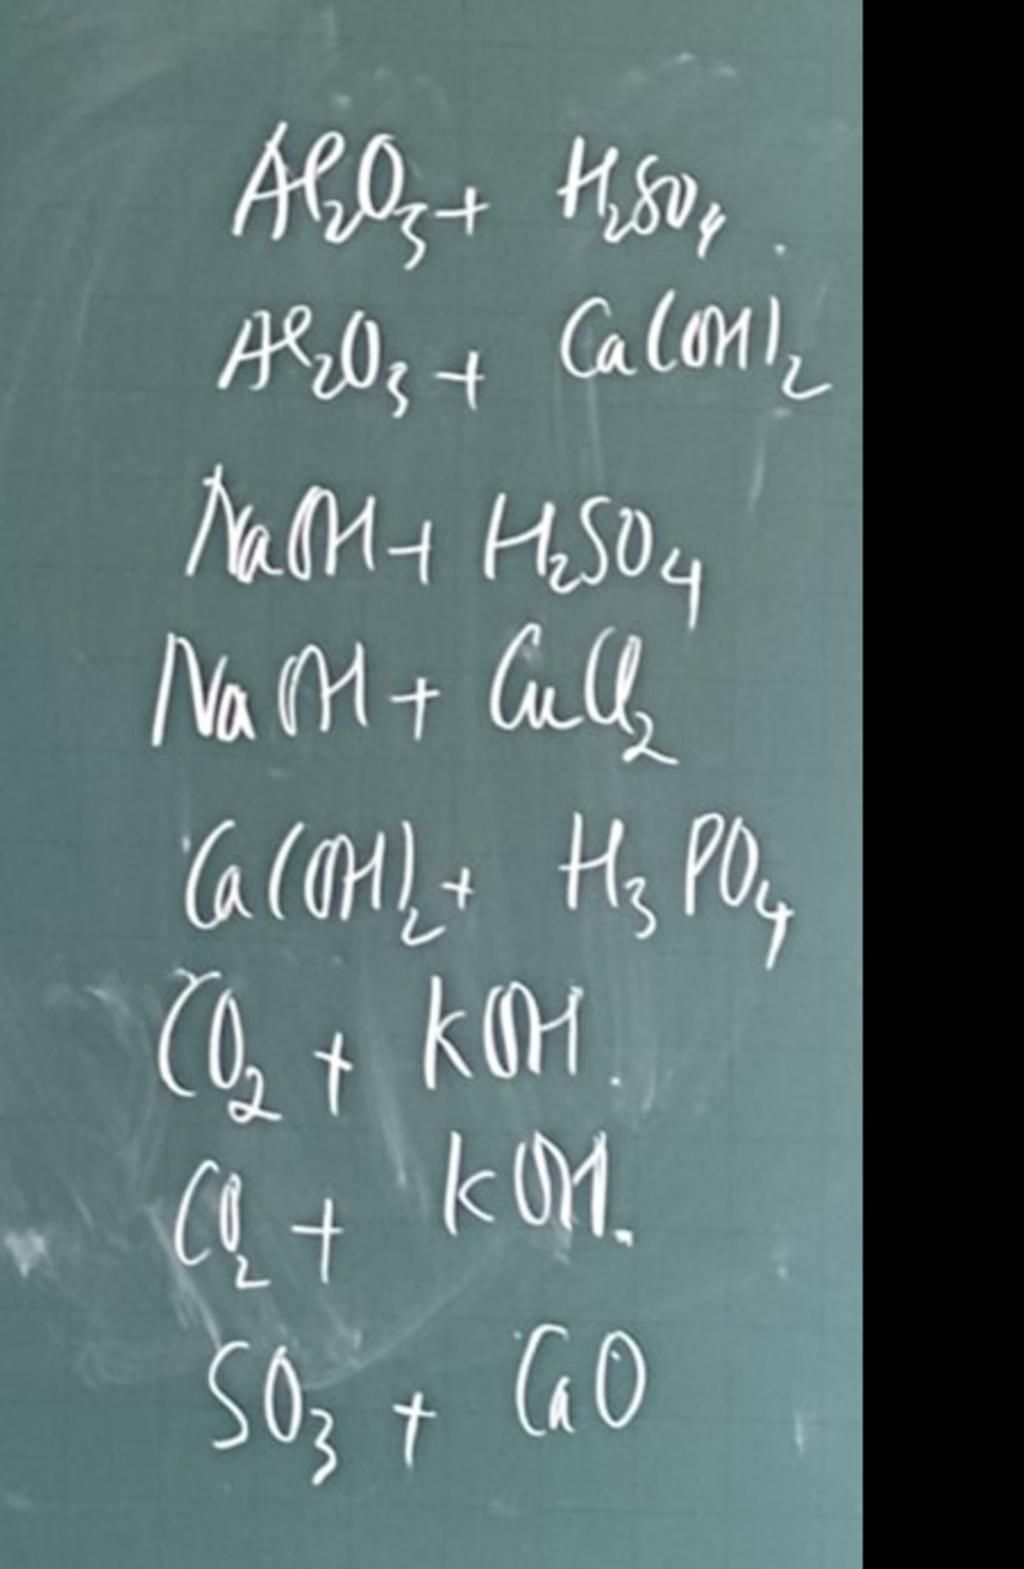 Al₂O₃ + H₂SO₄.
Al₂O₃ + Ca(OH)₂
NaOH + H₂SO₄
NaOH + CuCl₂
Ca(OH)₂ + H₃PO₄
CO₂ + KOH.
CO₂ + KOH.
SO₃ + CaO